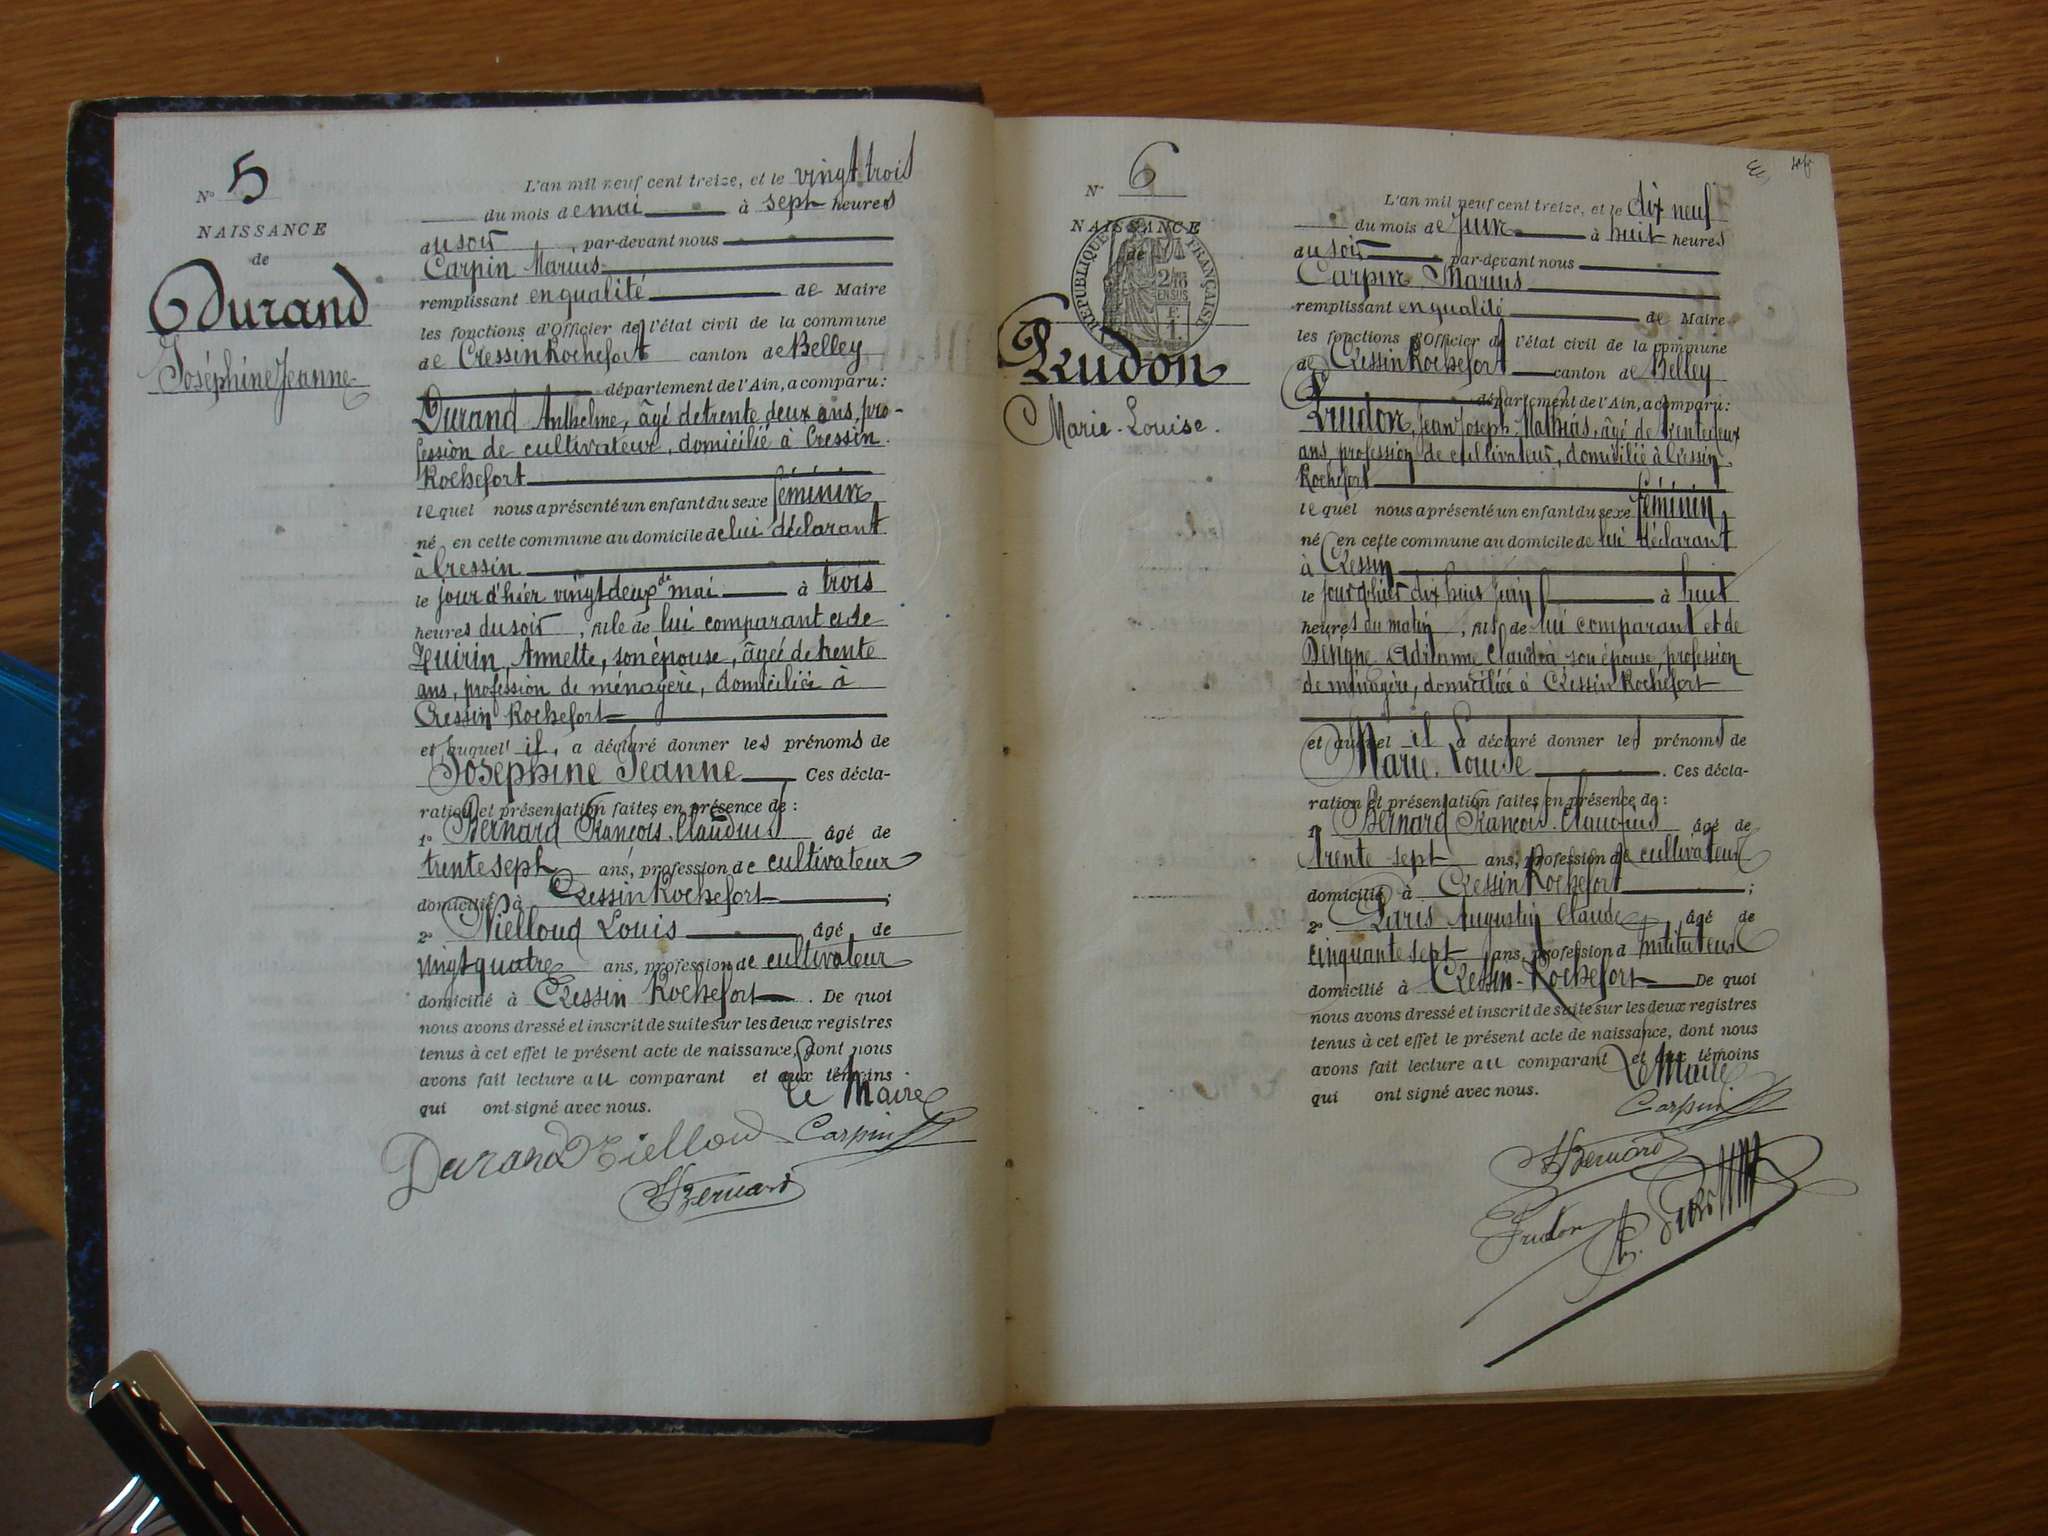 N° 5
NAISSANCE
de
Durand
Joséphine Jeanne
L'an mil neuf cent treize, et le vingt trois
du mois de mai à sept heures
du soir, par-devant nous
Carpin Marius
remplissant en qualité de Maire
les fonctions d'Officier de l'état civil de la commune
de Cressin Rochefort canton de Belley
département de l'Ain, a comparu:
Durand Anthelme, âgé de trente deux ans, pro-
fession de cultivateur, domicilié à Cressin.
Rochefort
lequel nous a présenté un enfant du sexe féminin
né en cette commune au domicile de lui déclarant
à Cressin
le jour d'hier vingt deux de mai à trois
heures du soir, fille de lui comparant et de
Annette, son épouse, âgée de trente
ans, profession de ménagère, domiciliée à
Cressin Rochefort
et auquel il a déclaré donner les prénoms de
Joséphine Jeanne Ces décla-
ration et présentation faites en présence de:
1° Bernard François Claudius âgé de
trente sept ans, profession de cultivateur
domicilié à Cressin Rochefort;
2° Nielloud Louis âgé de
vingt quatre ans, profession de cultivateur
domicilié à Cressin Rochefort. De quoi
nous avons dressé et inscrit de suite sur les deux registres
tenus à cet effet le présent acte de naissance, dont nous
avons fait lecture au comparant et aux témoins
qui ont signé avec nous.
Le Maire
Durand Nielloud Carpin
Bernard
N° 6
NAISSANCE
de
RÉPUBLIQUE FRANÇAISE
2/10
EN SUS
Prudon
Marie-Louise.
L'an mil neuf cent treize, et le dix neuf
du mois de Juin à huit heures
du soir par-devant nous
Carpin Marius
remplissant en qualité de Maire
les fonctions d'Officier de l'état civil de la commune
de Cressin Rochefort canton de Belley
département de l'Ain, a comparu:
Prudon, Jean Joseph Mathias, âgé de trente deux
ans, profession de cultivateur, domicilié à Cressin.
Rochefort
lequel nous a présenté un enfant du sexe féminin,
né en cette commune au domicile de lui déclarant
à Cressin
le jour d'hier dix huit Juin à huit
heures du matin, fille de lui comparant et de
Désigne Adrienne Claudia son épouse, profession
de ménagère, domiciliée à Cressin Rochefort
et auquel il a déclaré donner les prénoms de
Marie-Louise. Ces décla-
ration et présentation faites en présence de:
1° Bernard François Claudius âgé de
trente sept ans, profession de cultivateur
domicilié à Cressin Rochefort;
2° Paris Augustin Claude, âgé de
cinquante sept ans, profession d'Instituteur
domicilié à Cressin-Rochefort De quoi
nous avons dressé et inscrit de suite sur les deux registres
tenus à cet effet le présent acte de naissance, dont nous
avons fait lecture au comparant et aux témoins
qui ont signé avec nous.
Le Maire
Carpin
Bernard
Prudon